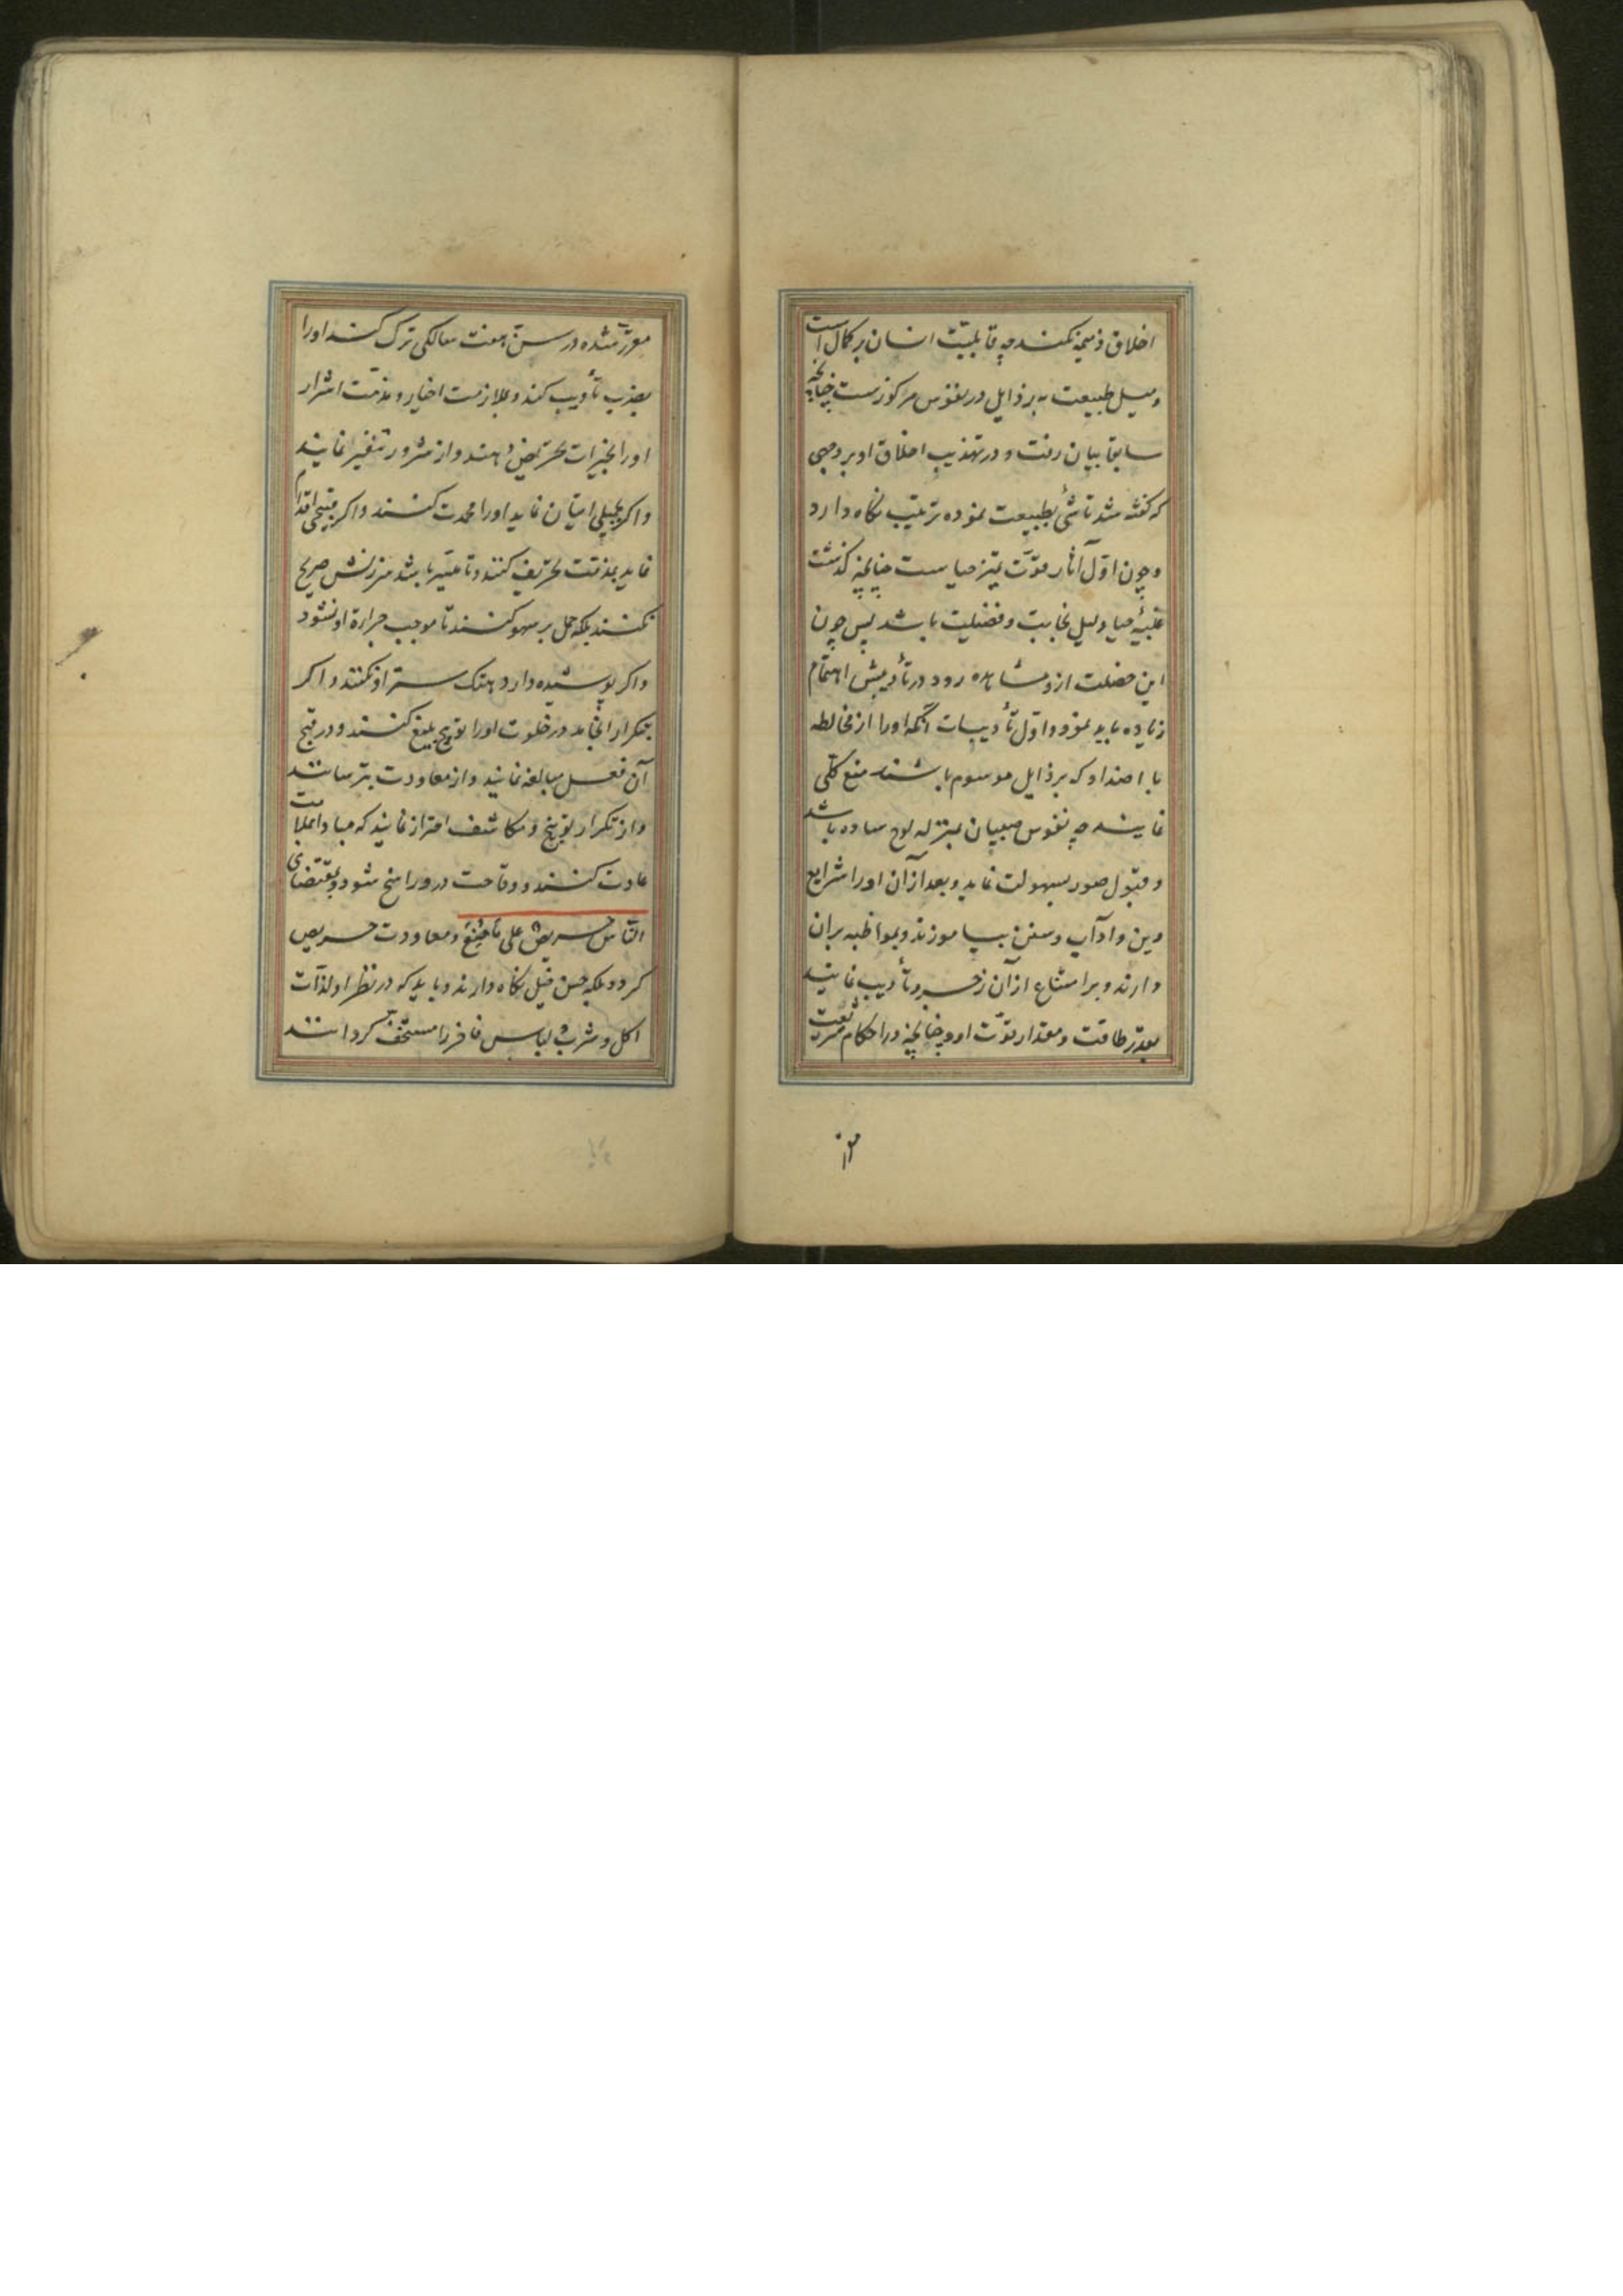 اخلاق ذمیمه نکند چه قابلیت انسان بر کمال است
و میل طبیعت به رذایل در نفوس مرکوزست چنانچه
سابقا بیان رفت و در تهذیب اخلاق او بر وجهی
که گفته شد تأسّی بطبیعت نموده ترتیب نکاه دارد
و چون اوّل آثار قوّت تمیز حیاست چنانچه گذشت
غلبهٔ حیا دلیل نجابت و فضیلت باشد پس چون
این خصلت ازو مشاهده رود در تأدیبش اهتمام
زیاده باید نمود و اوّل تأدیبات آنکه او را از مخالطه
با اضداد که برذایل موسوم باشند منع کلّی
نمایند چه نفوس صبیان بمنزله لوح ساده باشد
و قبول صور بسهولت نماید و بعد از آن او را شرایع
دین و آداب و سنن بیاموزند و بمواظبه بران
دارند و بر امتناع از آن زجر و تأدیب نمایند
بقدر طاقت و مقدار قوّت او و چنانچه در احکام شریعت
مقر
مقرّر شده در سنّ هفت سالکی ترک کند او را
بضرب تأدیب کنند و بملازمت اخیار و مذمّت اشرار
او را بخیرات تحریض دهند و از شرور تنفیر نمایند
و اکر بجمیلی اتیان نماید او را محمدت کنند و اکر بقبیحی اقدام
نماید بمذمّت تخویف کنند و تا میسّر باشد سرزنش صریح
نکنند بلکه حمل بر سهو کنند تا موجب جرارة او نشود
و اکر پوشیده دارد هتک ستر او نکنند و اکر
بتکرار انجامد در خلوت او را توبیخ بلیغ کنند و در قبح
آن فعل مبالغه نمایند و از معاودت بترسانند
و از تکرار توبیخ و مکاشفت احتراز نمایند که مبادا بملامت
عادت کنند و وقاحت درو راسخ شود و بمقتضای
النّاس حریصٌ علی مامُنِعَ و معاودت حریص
کردد بلکه حسن حیل نکاه دارند و باید که در نظر او لذّات
اکل و شرب و لباس فاخر را مستخفّ کردانند